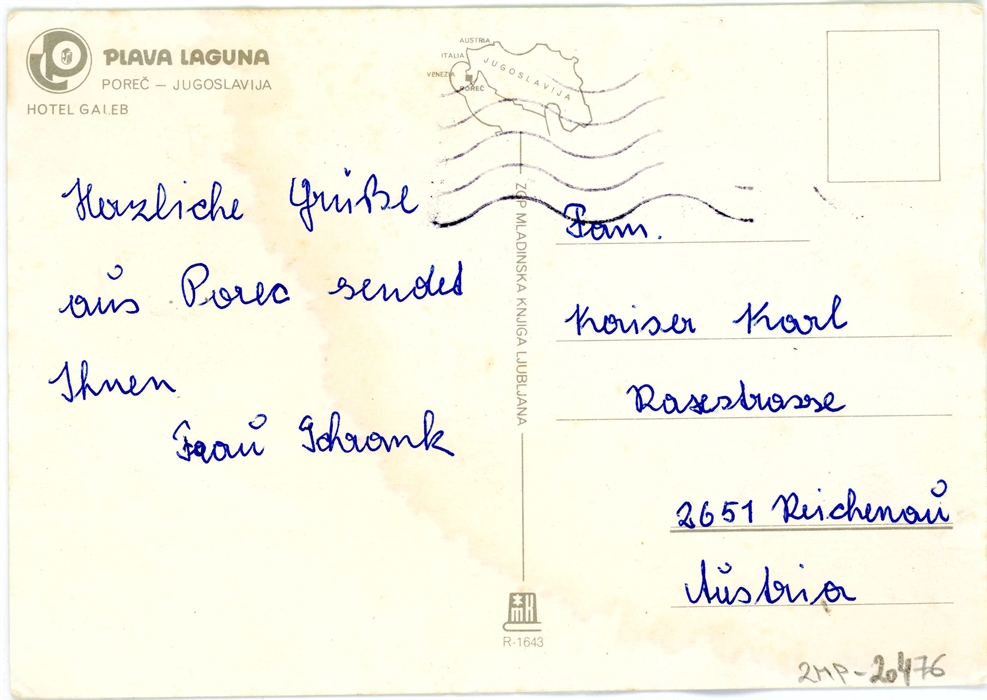 PLAVA LAGUNA
POREČ – JUGOSLAVIJA
HOTEL GALEB
AUSTRIA
ITALIA
VENEZIA
JUGOSLAVIJA
POREČ
Herzliche Grüße
aus Porec sendet
Ihnen
Frau Schrank
ZGP MLADINSKA KNJIGA LJUBLJANA
mk
R-1643
Fam.
Kaiser Karl
Raxstrasse
2651 Reichenau
Austria
2MP-20476